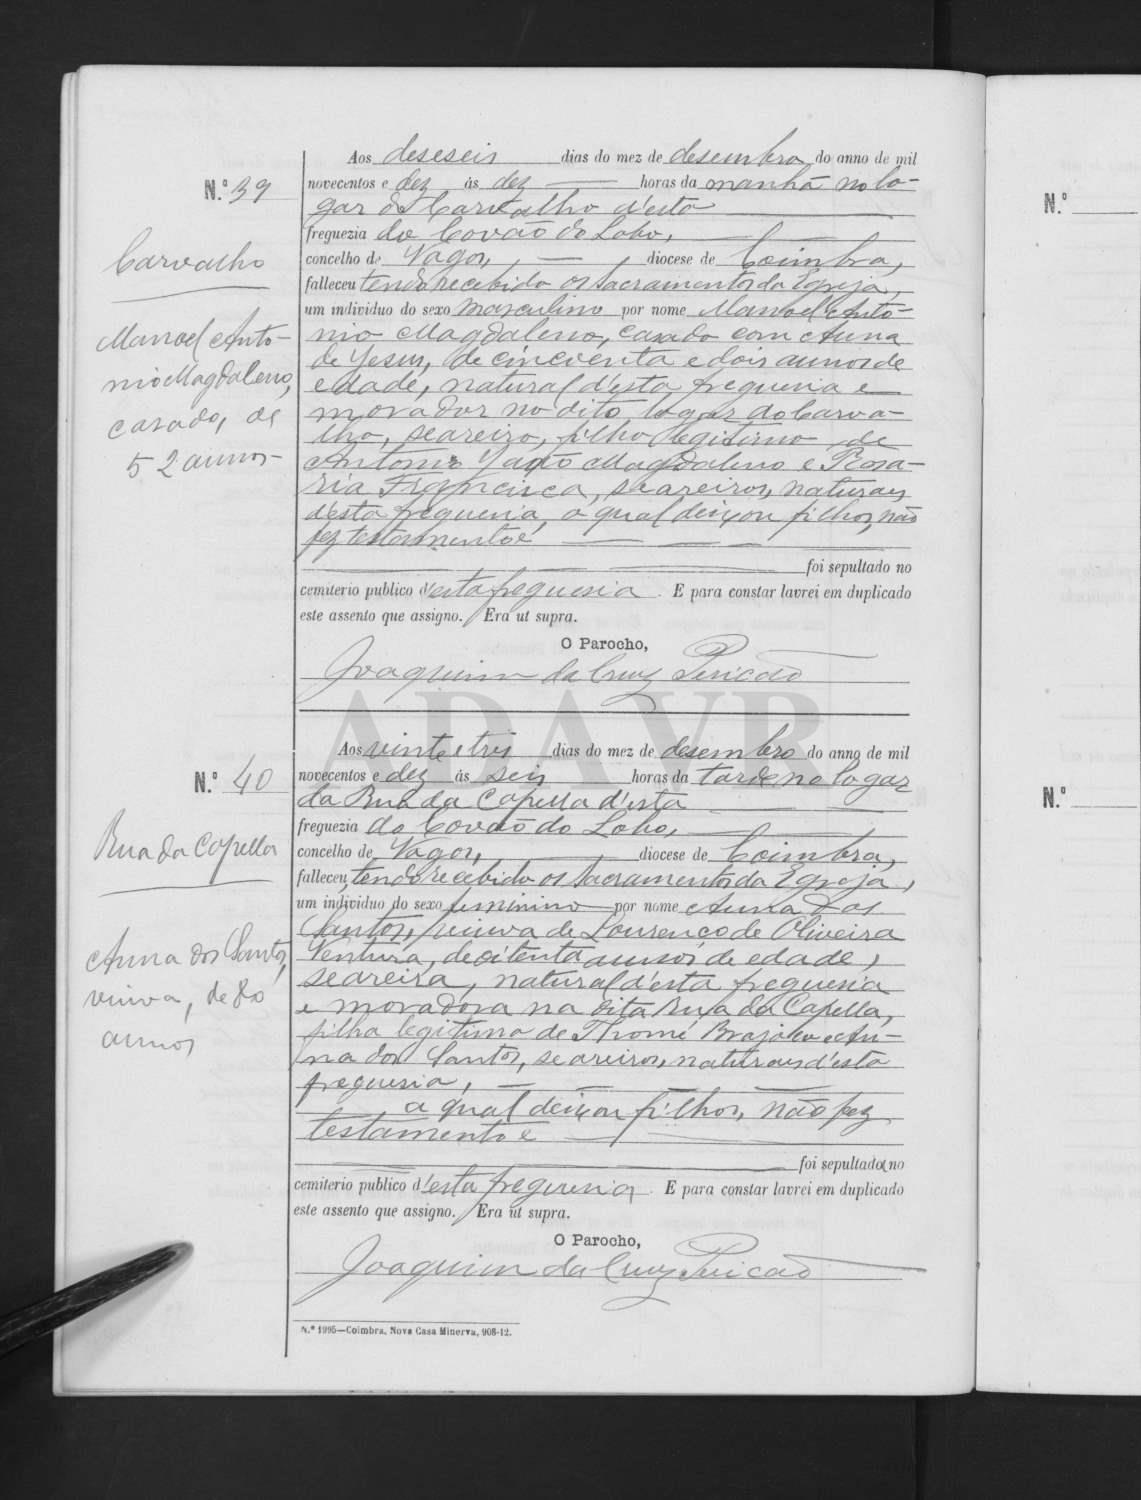 N.º 39
Carvalho
Manoel Anto-
nio Magdaleno,
casado, de
52 annos
Aos deseseis dias do mez de desembro do anno de mil
novecentos e dez ás dez horas da manhã no lo-
gar do Carvalho d'esta
freguezia do Covão do Lobo,
concelho de Vagos, diocese de Coimbra,
falleceu tendo recebido os Sacramentos da Egreja,
um individuo do sexo masculino por nome Manoel Anto-
nio Magdaleno, casado com Anna
de Jesus, de cincoenta e dois annos de
edade, natural d'esta freguesia e
morador no dito logar do Carva-
lho, seareiro, filho legitimo de
Antonio Magdaleno e Rosa-
ria Francisca, seareiros, naturaes
d'esta freguesia, o qual deixou filhos, não
fez testamento e
foi sepultado no
cemiterio publico d'esta freguesia. E para constar lavrei em duplicado
este assento que assigno. Era ut supra.
O Parocho,
Joaquim da Cruz Pericão
ADAVR
N.º 40
Rua da Capella
Anna dos Santos,
viuva, de 80
annos
Aos vinte e tres dias do mez de desembro do anno de mil
novecentos e dez ás seis horas da tarde no logar
da Rua da Capella d'esta
freguezia do Covão do Lobo,
concelho de Vagos, diocese de Coimbra,
falleceu, tendo recebido os Sacramentos da Egreja,
um individuo do sexo feminino por nome Anna dos
Santos, viuva de Lourenço de Oliveira
Ventura, de oitenta annos de edade,
seareira, natural d'esta freguesia
e moradora na dita Rua da Capella,
filha legitima de Thomé e An-
na dos Santos, seareiros, naturaes d'esta
freguesia,
a qual deixou filhos, não fez
testamento e
foi sepultada no
cemiterio publico d'esta freguesia. E para constar lavrei em duplicado
este assento que assigno. Era ut supra.
O Parocho,
Joaquim da Cruz Pericão
N.º 1995—Coimbra, Nova Casa Minerva, 908-12.
N.º
N.º